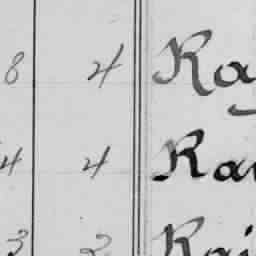 8 4 Ra
4 4 Ra
3 2 Rai